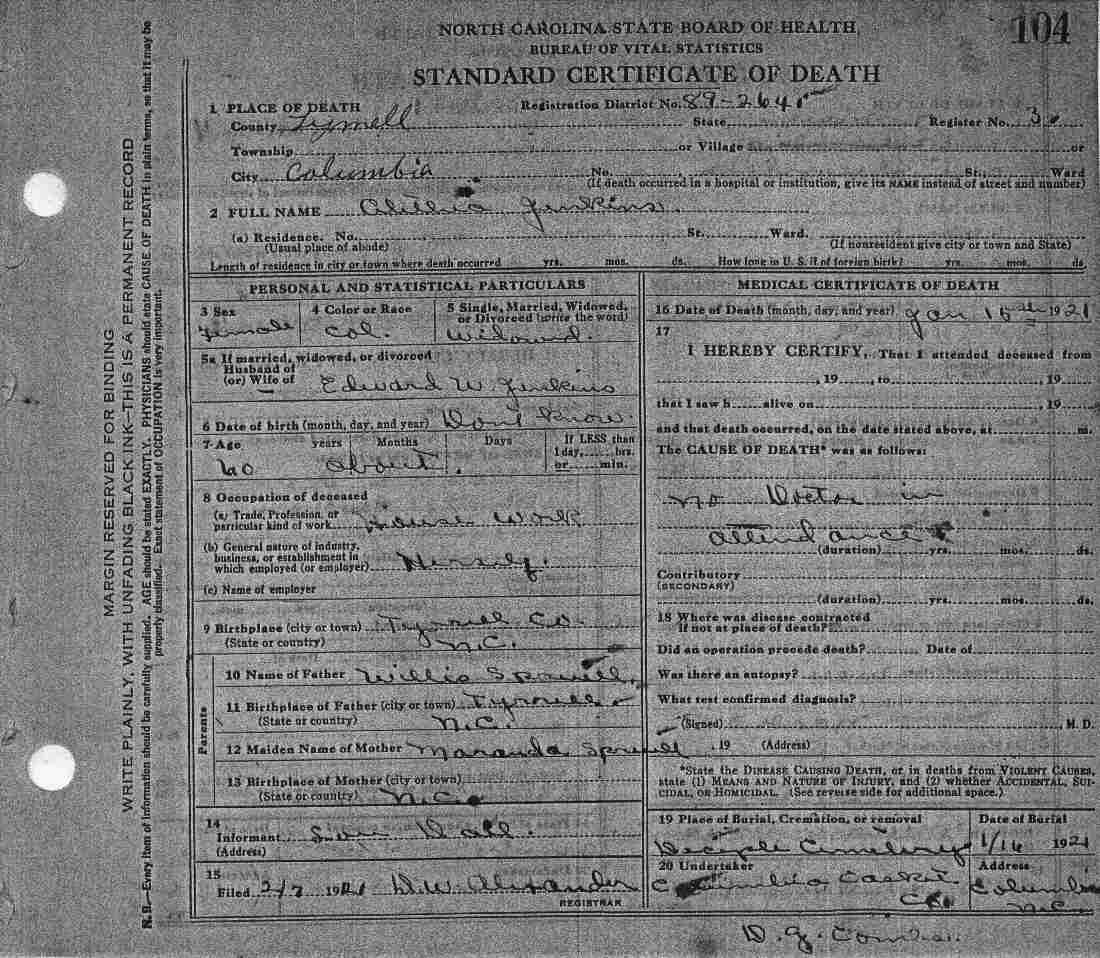 104
NORTH CAROLINA STATE BOARD OF HEALTH
BUREAU OF VITAL STATISTICS
STANDARD CERTIFICATE OF DEATH
1 PLACE OF DEATH Registration District No. 89-2645
County Tyrrell State Register No. 3
Township or Village or
City Columbia No. St., Ward
(If death occurred in a hospital or institution, give its NAME instead of street and number)
2 FULL NAME Jenkins
(a) Residence. No. St. Ward.
(Usual place of abode) (If nonresident give city or town and State)
Length of residence in city or town where death occurred yrs. mos. ds. How long in U. S. if of foreign birth? yrs. mos. ds.
PERSONAL AND STATISTICAL PARTICULARS
3 Sex 4 Color or Race 5 Single, Married, Widowed, or Divorced (write the word)
Female Col. Widowed.
5a If married, widowed, or divorced
Husband of
(or) Wife of Edward W. Jenkins
6 Date of birth (month, day, and year) Dont know
7 Age years Months Days If LESS than
1 day, hrs.
or min.
about
8 Occupation of deceased
(a) Trade, Profession, or
particular kind of work House Work
(b) General nature of industry,
business, or establishment in
which employed (or employer) Herself.
(c) Name of employer
9 Birthplace (city or town) Tyrrell Co.
(State or country) N.C.
Parents
10 Name of Father Willis Spruill
11 Birthplace of Father (city or town) Tyrrell
(State or country) N.C.
12 Maiden Name of Mother Maranda Spruill
13 Birthplace of Mother (city or town)
(State or country) N.C.
14
Informant
(Address)
15
Filed 2/7 1921 D.W. Alexander
REGISTRAR
MEDICAL CERTIFICATE OF DEATH
16 Date of Death (month, day, and year) Jan 15th 1921
17
I HEREBY CERTIFY, That I attended deceased from
, 19 , to , 19
that I saw h alive on , 19
and that death occurred, on the date stated above, at m.
The CAUSE OF DEATH* was as follows:
no Doctor in
attendance
(duration) yrs. mos. ds.
Contributory
(SECONDARY)
(duration) yrs. mos. ds.
18 Where was disease contracted
if not at place of death?
Did an operation precede death? Date of
Was there an autopsy?
What test confirmed diagnosis?
(Signed) , M. D.
, 19 (Address)
*State the DISEASE CAUSING DEATH, or in deaths from VIOLENT CAUSES,
state (1) MEANS AND NATURE OF INJURY, and (2) whether ACCIDENTAL, SUI-
CIDAL, OR HOMICIDAL. (See reverse side for additional space.)
19 Place of Burial, Cremation, or removal Date of Burial
Deciple Cemetery 1/16 1921
20 Undertaker Address
Columbia Casket Columbia
Co. N.C.
MARGIN RESERVED FOR BINDING
WRITE PLAINLY, WITH UNFADING BLACK INK—THIS IS A PERMANENT RECORD
N. B.—Every item of information should be carefully supplied. AGE should be stated EXACTLY. PHYSICIANS should state CAUSE OF DEATH in plain terms, so that it may be
properly classified. Exact statement of OCCUPATION is very important.